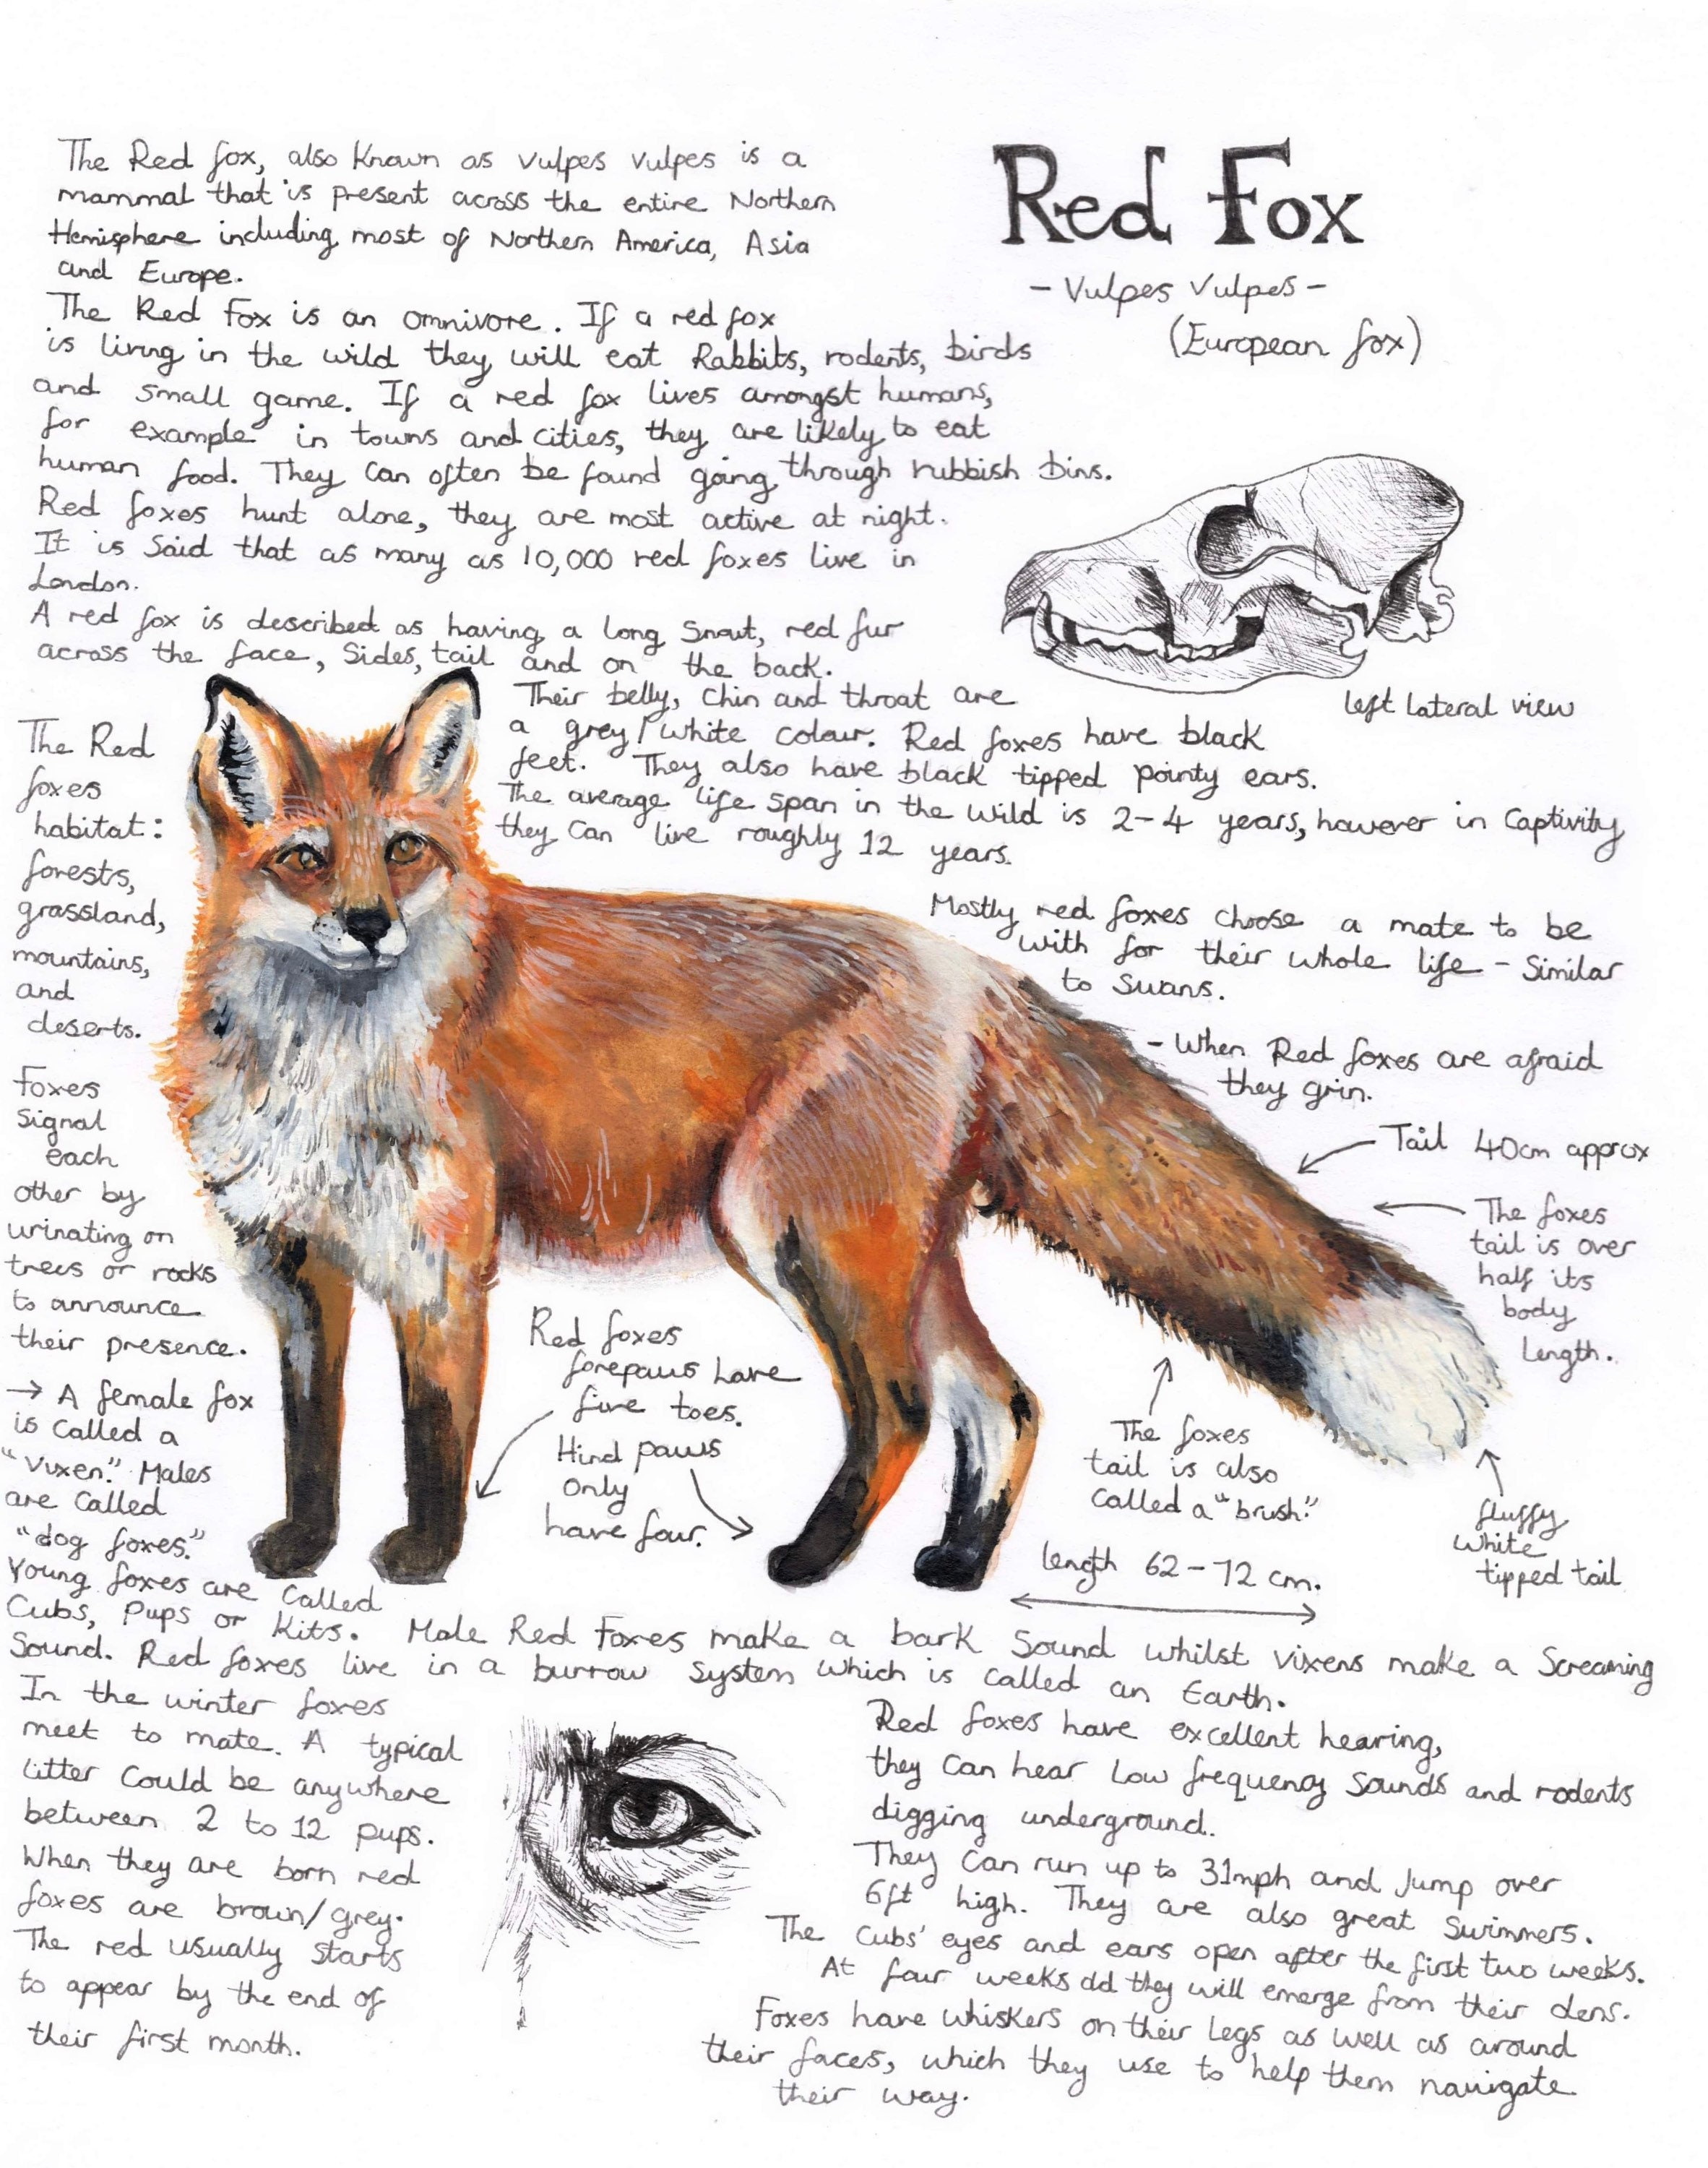 Red Fox
- Vulpes Vulpes -
(European fox)
The Red fox, also Known as vulpes vulpes is a
mammal that is present across the entire Northern
Hemisphere including most of Northern America, Asia
and Europe.
The Red Fox is an omnivore. If a red fox
is living in the wild they will eat Rabbits, rodents, birds
and small game. If a red fox lives amongst humans,
for example in towns and cities, they are likely to eat
human food. They can often be found going through rubbish bins.
Red foxes hunt alone, they are most active at night.
It is said that as many as 10,000 red foxes live in
London.
A red fox is described as having a long snout, red fur
across the face, sides, tail and on the back.
Their belly, chin and throat are
a grey/white colour. Red foxes have black
feet. They also have black tipped pointy ears.
The average life span in the wild is 2-4 years, however in captivity
they can live roughly 12 years.
left lateral view
The Red
foxes
habitat:
forests,
grassland,
mountains,
and
deserts.
Foxes
signal
each
other by
urinating on
trees or rocks
to announce
their presence.
→ A female fox
is called a
"vixen." Males
are called
"dog foxes."
Young foxes are called
Cubs, Pups or Kits.
Mostly red foxes choose a mate to be
with for their whole life - similar
to swans.
- When Red foxes are afraid
they grin.
Tail 40cm approx
The foxes
tail is over
half its
body
length.
Red foxes
forepaws have
five toes.
Hind paws
only
have four.
The foxes
tail is also
called a "brush."
fluffy
white
tipped tail
length 62-72 cm.
Male Red Foxes make a bark sound whilst vixens make a screaming
sound. Red foxes live in a burrow system which is called an Earth.
In the winter foxes
meet to mate. A typical
litter could be anywhere
between 2 to 12 pups.
When they are born red
foxes are brown/grey.
The red usually starts
to appear by the end of
their first month.
Red foxes have excellent hearing,
they can hear low frequency sounds and rodents
digging underground.
They can run up to 31mph and jump over
6ft high. They are also great swimmers.
The cubs' eyes and ears open after the first two weeks.
At four weeks old they will emerge from their dens.
Foxes have whiskers on their legs as well as around
their faces, which they use to help them navigate
their way.